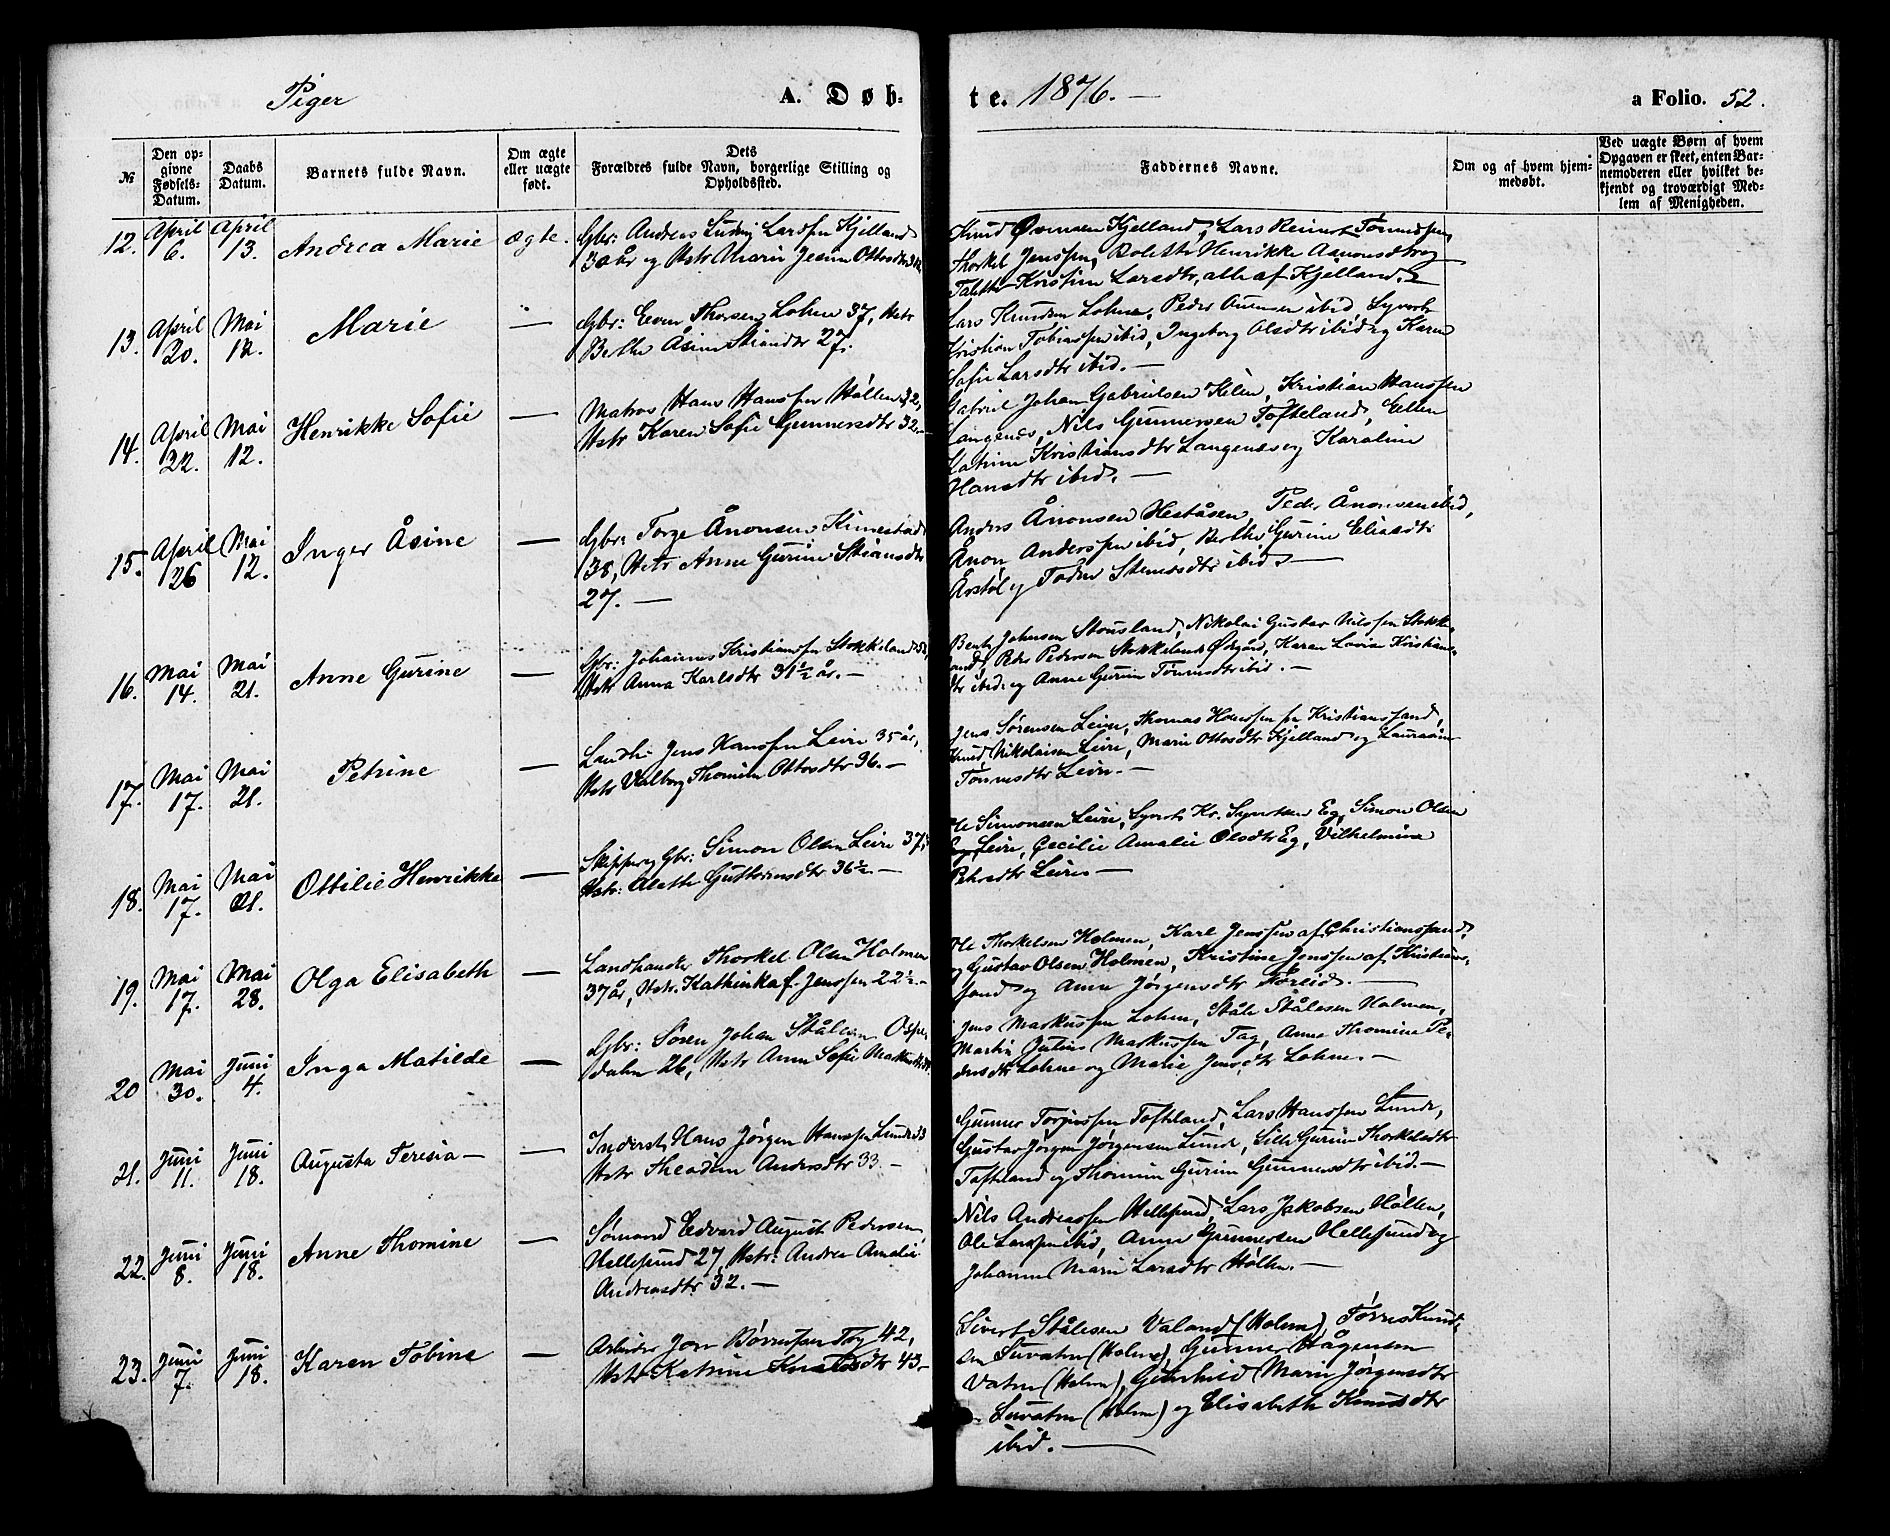 Piger
A. Døb-
te. 1876. —
a Folio. 52.
№
Den op-
givne
Fødsels-
Datum.
Daabs
Datum.
Barnets fulde Navn.
Om ægte
eller uægte
født.
Dets
Forældres fulde Navn, borgerlige Stilling og
Opholdssted.
Faddernes Navne.
Om og af hvem hjem-
medøbt.
Ved uægte Børn af hvem
Opgaven er skeet, enten Bar-
nemoderen eller hvilket be-
kjendt og troværdigt Med-
lem af Menigheden.
12. April 6. April 13. Andrea Marie ægte.
Gbr: Anders Ludvig Larssen Kjelland
30 år og Hstr Marie Ottosdtr
Knud Kjelland, Lars Reinert
Thorkel Jenssen, Bolette Henrikke og
Kristine Larsdtr, alle af Kjelland.
13. April 20. Mai 12. Marie —
Gbr: Even Thorsen Lohne 37, Hstr
Berthe Åsine 27.
Lars Knudsen Lohne, Peder ibid, Syvert
Kristian Tobiassen ibid, Ingeborg Olsdtr ibid og Karen
Sofie Larsdtr ibid. —
14. April 22. Mai 12. Henrikke Sofie —
Matros Hans Hanssen Høllen 32,
Hstr Karen Sofie Gunnersdtr 32. —
Gabriel Johan Gabrielsen Kilen, Kristian Hanssen
Langenes, Nils Gunnersen Tofteland, Ellen
Katrine Kristiansdtr Langenes og Karoline
Hansdtr ibid. —
15. April 26 Mai 12. Inger Åsine —
Gbr: Torge Ånonsen Kinnestad
38, Hstr Anne Gurine Stiansdtr
27. —
Anders Ånonsen Heståsen, Peder Ånonsen ibid,
Ånon Anderssen ibid, Berthe Gurine Eliasdtr
Årstøl og ibid. —
16. Mai 14. Mai 21. Anne Gurine —
Gbr: Johannes Kristianssen Stokkeland
Hstr Anna Karlsdtr 31½ år. —
Bent Johnsen Stausland, Nikolai Gustav Nilssen Stokke-
land, Peder Pedersen Stokkeland Ødegård, Karen Lovise Kristians-
dtr ibid. og Anne Gurine Tønnesdtr ibid. —
17. Mai 17. Mai 21. Petrine —
Jens Hanssen Leire 35 år,
Hstr Valborg Thomine Ottosdtr 36. —
Jens Sørensen Leire, Thomas Hanssen fr Kristianssand,
Knud Nikolaisen Leire, Marie Ottosdtr Kjelland og
Tønnesdtr Leire. —
18. Mai 17. Mai 21. Ottilie Henrikke —
Skipper og Gbr: Simon Olsen Leire 37,
Hstr: Alethe 36½ —
Ole Simonsen Leire, Syvert Kr. Syvertsen Eg, Simon Olsen
Leire, Cecilie Amalie Olsdtr Eg, Vilhelmine
Leire —
19. Mai 17. Mai 28. Olga Elisabeth —
Landhandler Thorkel Olsen Holmen
37 år, Hstr. Kathinka f. Jenssen 22½ —
Ole Thorkelsen Holmen, Karl Jenssen af Christianssand,
og Gustav Olsen Holmen, Kristine Jenssen af Kristians-
sand og Anne Jørgensdtr Føreid. —
20 Mai 30. Juni 4. Inga Matilde —
Gbr: Søren Johan Stålesen Ospe-
dalen 26, Hstr Anne Sofie
Jens Markussen Lohne, Ståle Stålesen Holmen,
Martin Julius Markussen Tag, Anne Thomine Pe-
dersdtr Lohne og Marie Jensdtr Lohne. —
21. Juni 11. Juni 18. Augusta Teresia — —
Inderst, Hans Jørgen Hanssen Lunde 33
Hstr Theodine Andersdtr 33. —
Gunner Torjussen Tofteland, Lars Hanssen Lunde,
Gustav Jørgen Jørgensen Lunde, Sille Gurine Thorkelsdtr
Tofteland og Thomine Gurine Gunnersdtr ibid. —
22. Juni 8. Juni 18. Anne Thomine —
Sømand Edvard August Pedersen
Hellesund 27, Hstr: Andrea Amalie
Andreasdtr 32. —
Nils Andreassen Hellesund, Lars Jakobsen Høllen,
Ole Larssen ibid, Anne Gunnersen Hellesund og
Johanne Marie Larsdtr Høllen. —
23. Juni 7. Juni 18. Karen Tobine —
Arbeider Jon 42,
Hstr Katrine Knudsdtr 43. —
Sivert Stålesen Valand (Holme), Tørres Knud-
sen (Holme), Gunner Hågensen
Vatne (Holme), Gunhild Marie Jørgensdtr
(Holme) og Elisabeth Knudsdtr
ibid. —